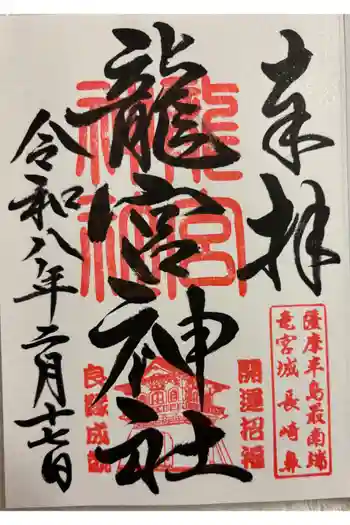 奉拝
龍宮神社
龍宮神社
薩摩半島最南端
竜宮城 長崎鼻
開運招福
良縁成就
令和八年二月十七日